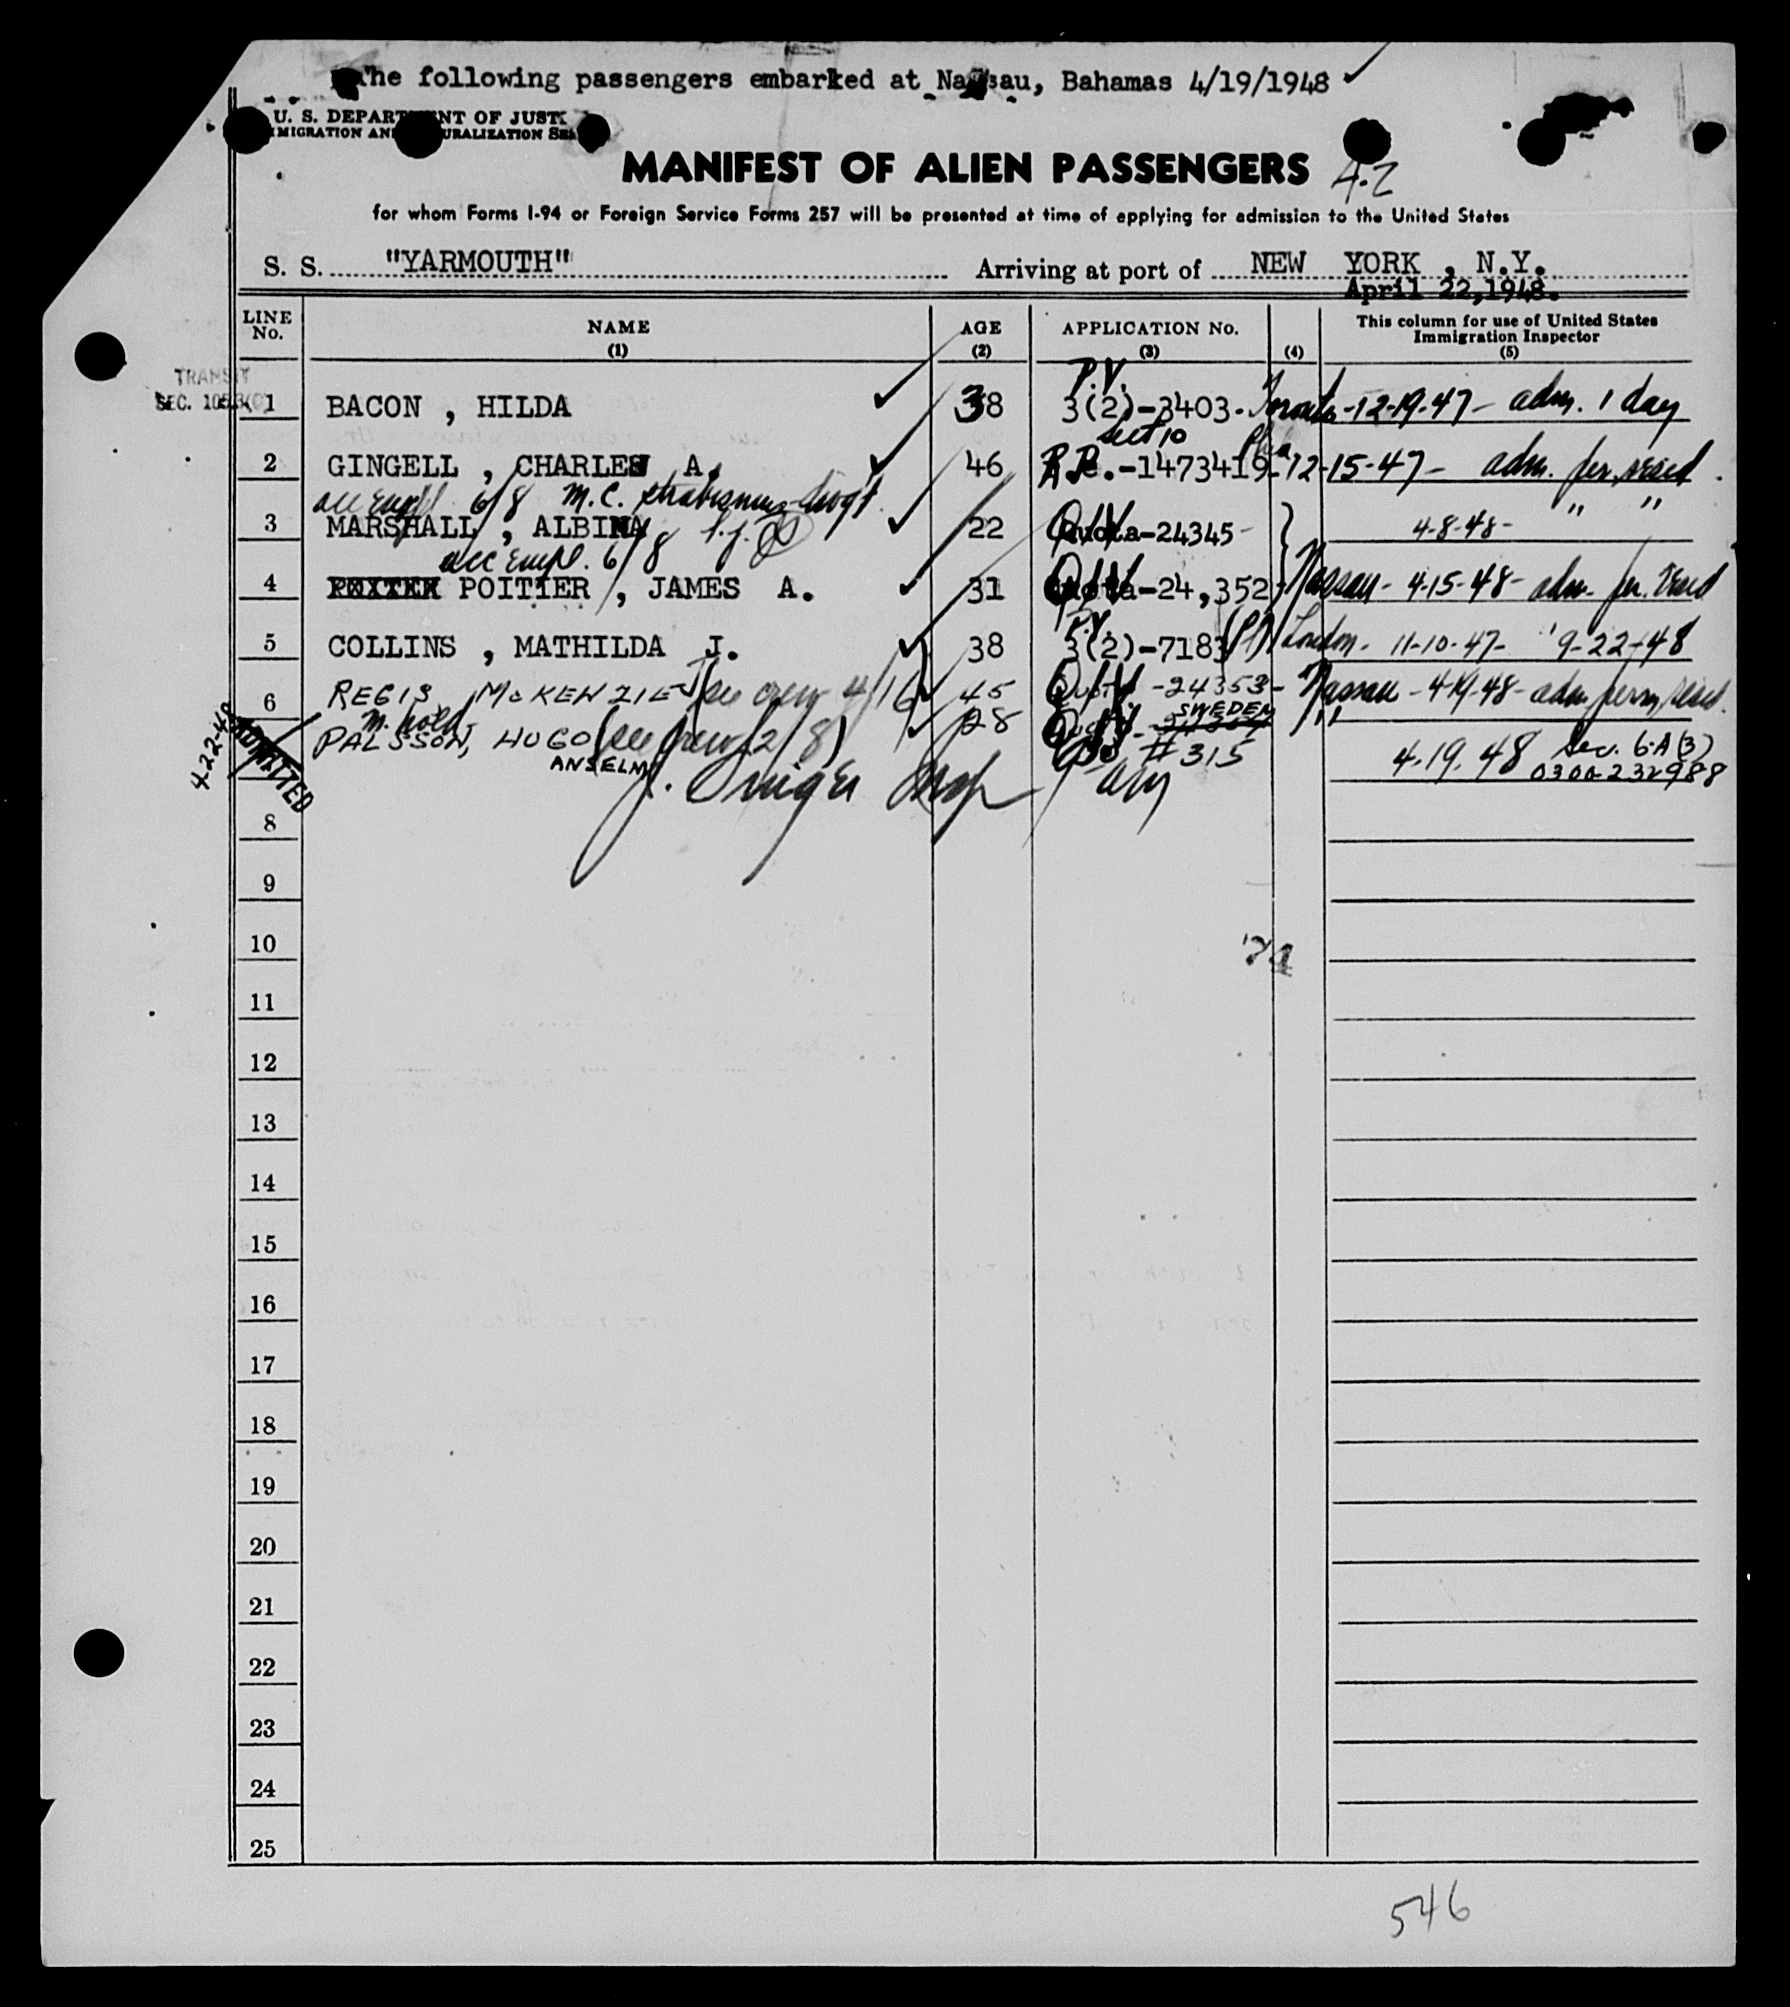 The following passengers embarked at Nassau, Bahamas 4/19/1948 ✓
U. S. DEPARTMENT OF JUST
IMMIGRATION AND NATURALIZATION SER
MANIFEST OF ALIEN PASSENGERS A-2
for whom Forms I-94 or Foreign Service Forms 257 will be presented at time of applying for admission to the United States
S. S. "YARMOUTH" Arriving at port of NEW YORK , N.Y.
April 22,1948.
LINE No. NAME (1) AGE (2) APPLICATION No. (3) (4) This column for use of United States Immigration Inspector (5)
TRANSIT
SEC. 105.3(c)
P.V.
1 BACON , HILDA ✓ 38 3(2)-3403. Toronto-12-19-47- adm. 1 day
Sect 10
2 GINGELL , CHARLES A. ✓ 46 R.P.-1473419-12-15-47- adm. per. resid.
acc empl 6/8 M.C. strabismus
3 MARSHALL , ALBINA ✓ 22 Quota-24345- 4-8-48- " "
acc empl. 6/8
4 POITIER , JAMES A. ✓ 31 Quota-24,352 Nassau- 4-15-48- adm. per. resid
P.V.
5 COLLINS , MATHILDA J. ✓ 38 3(2)-7183 London- 11-10-47- 9-22-48
6 REGIS, McKENZIE (see crew 4/16) ✓ 45 Quota -24353- Nassau -4-19-48- adm perm. resid.
SWEDEN
PALSSON, HUGO (see crew 12/8) ✓ 28 #315 " 4.19.48 Sec. 6.A(3)
ANSELM 0300-232988
4-22-48
ADMITTED
Insp
8
9
10
11
12
13
14
15
16
17
18
19
20
21
22
23
24
25
546